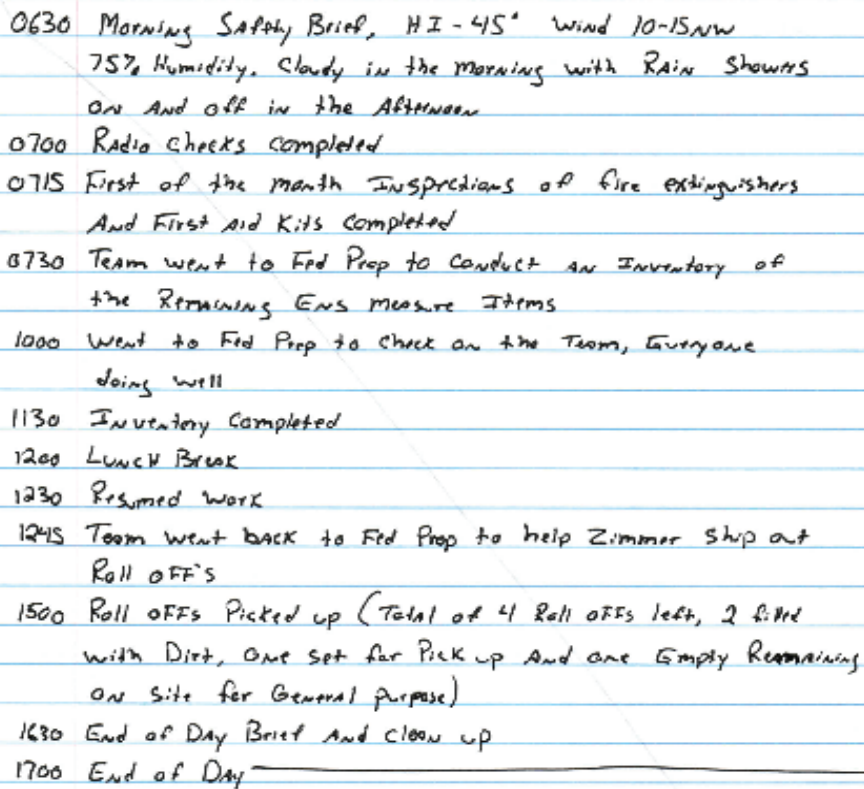 0630 Morning Safety Brief, HI - 45° Wind 10-15 NW
75% Humidity. Cloudy in the morning with Rain Showers
on And off in the Afternoon
0700 Radio checks completed
0715 First of the month Inspections of fire extinguishers
And First Aid Kits Completed
0730 Team went to Fed Prop to conduct an Inventory of
the Remaining Ens measure Items
1000 Went to Fed Prop to check on the Team, Everyone
doing well
1130 Inventory Completed
1200 Lunch Break
1230 Resumed Work
1245 Team went back to Fed Prop to help Zimmer Ship out
Roll OFF's
1500 Roll OFFs Picked up (Total of 4 Roll OFFs left, 2 filled
with Dirt, One set for Pick up And one Empty Remaining
on Site for General Purpose)
1630 End of Day Brief And Clean up
1700 End of Day